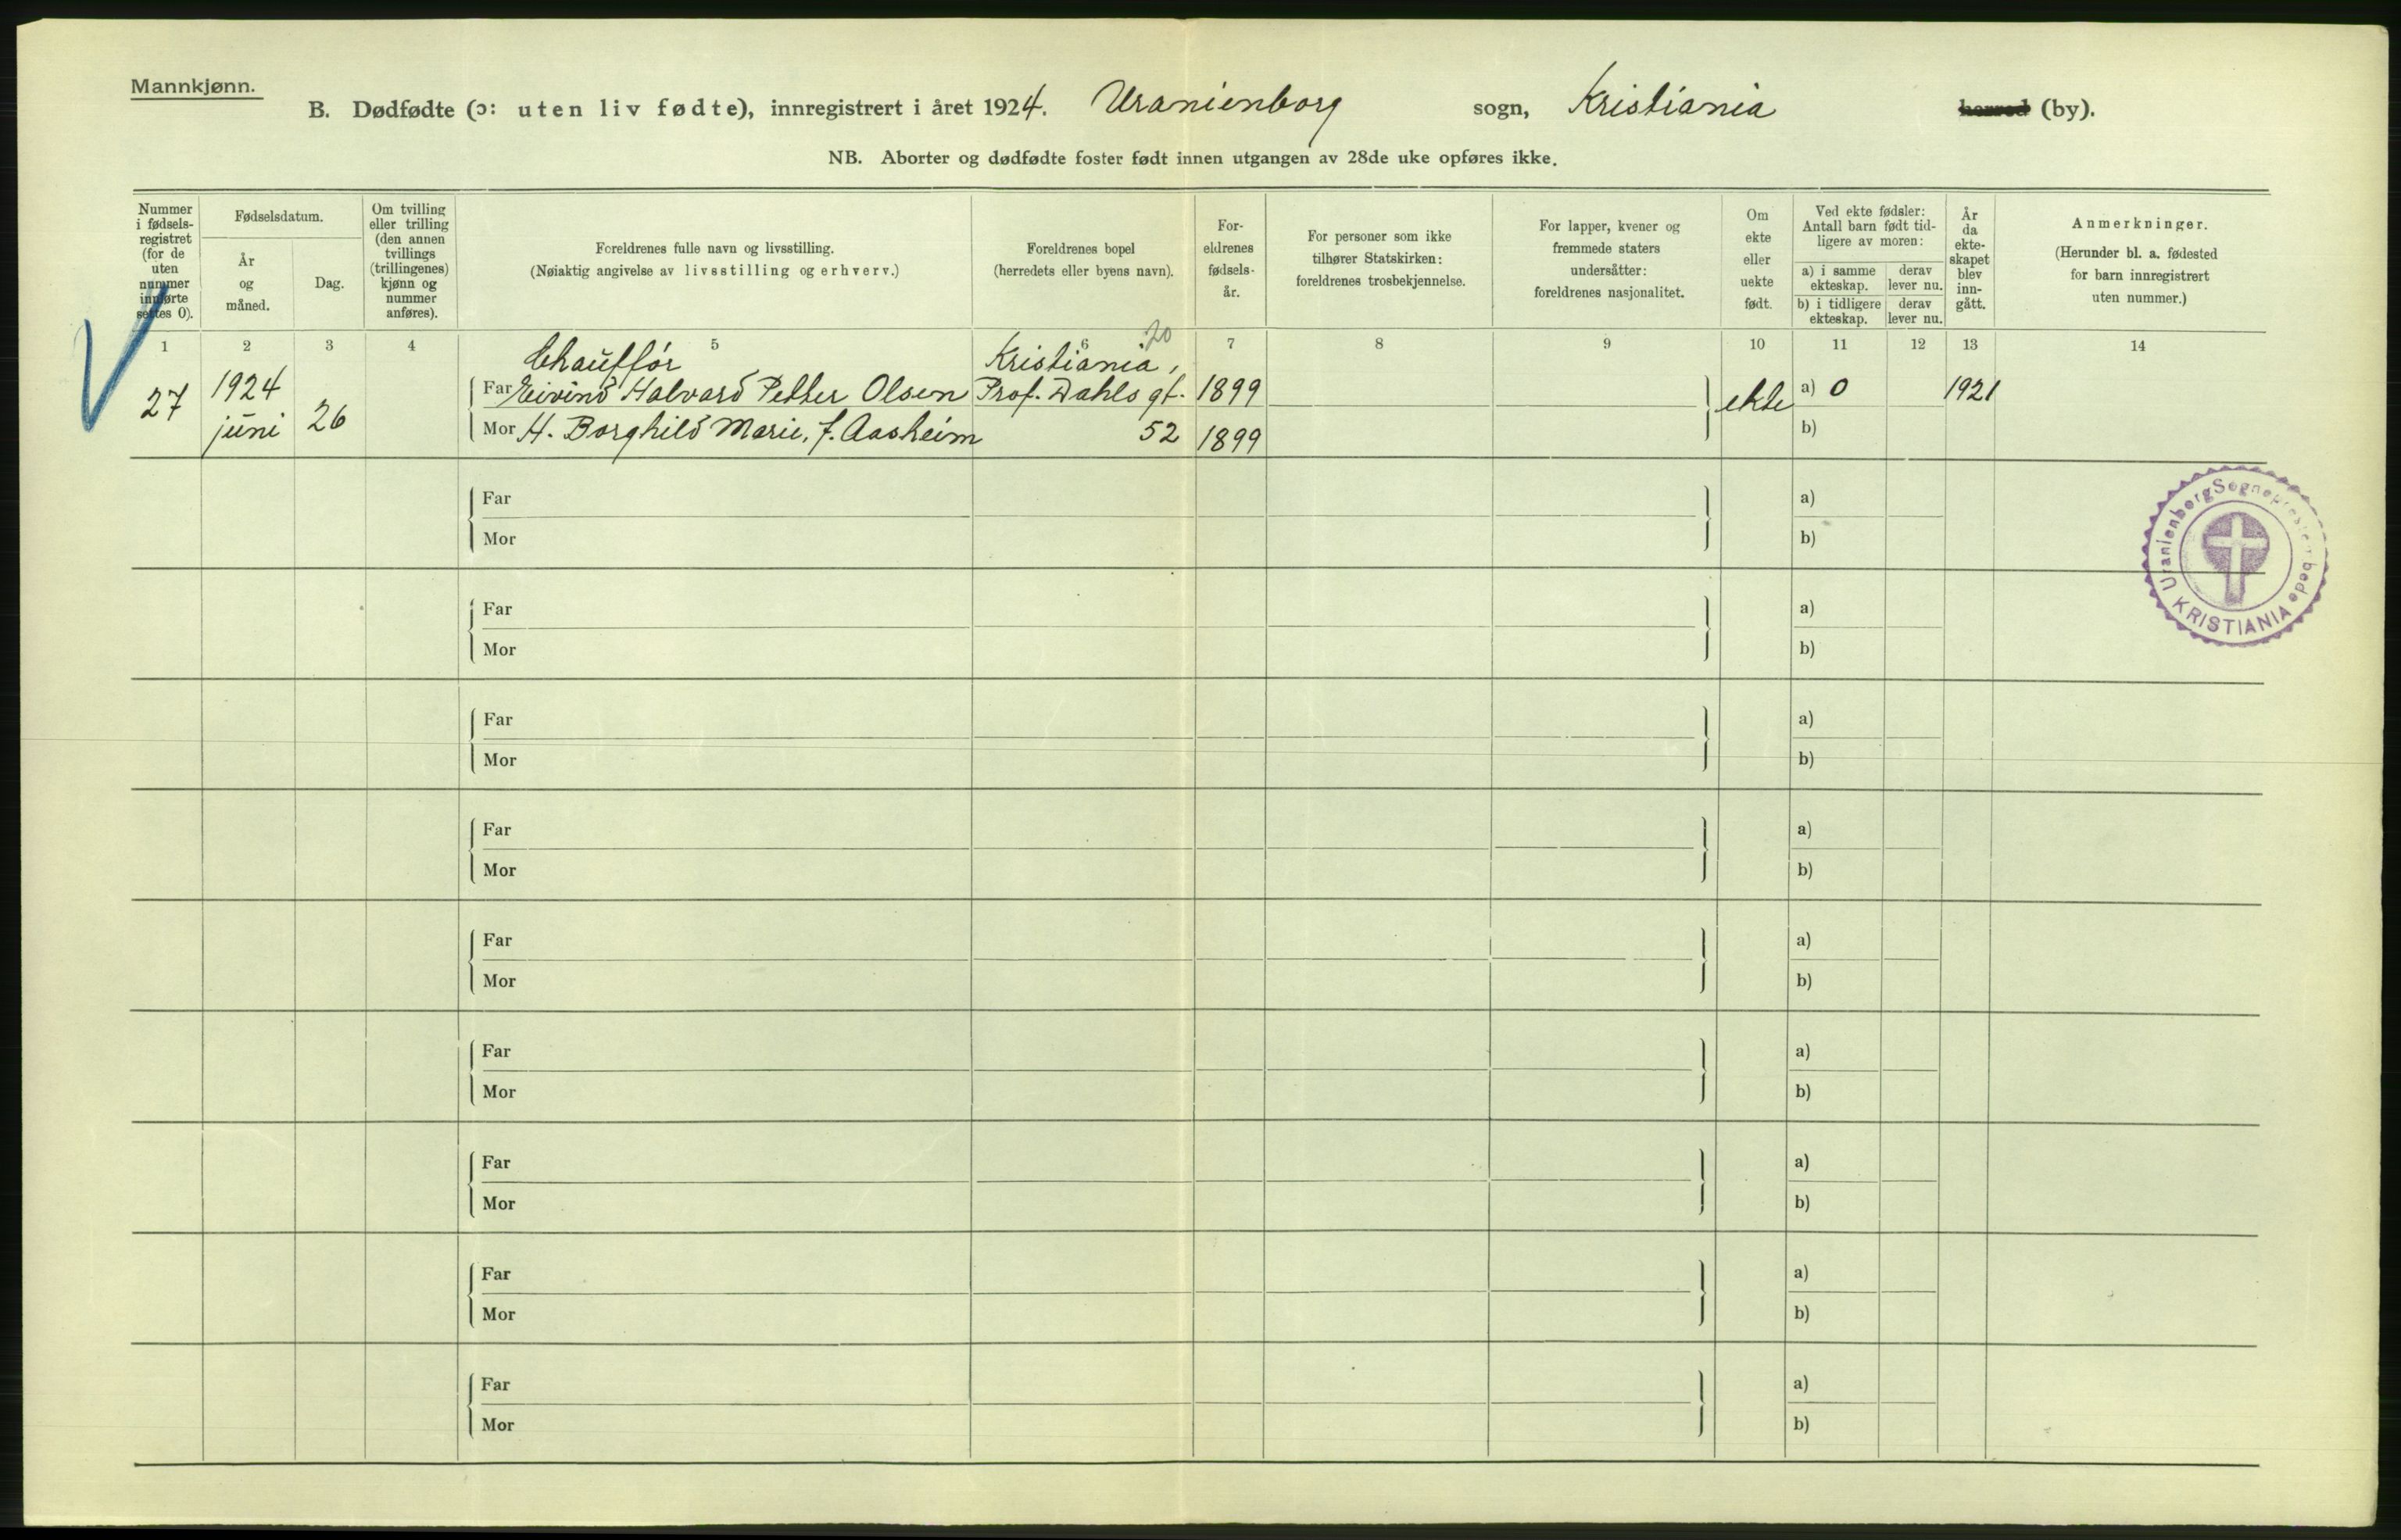 Mannkjønn.
B. Dødfødte (ɔ: uten liv fødte), innregistrert i året 1924. Uranienborg sogn, Kristiania herred (by).
NB. Aborter og dødfødte foster født innen utgangen av 28de uke opføres ikke.
Nummer i fødsels-registret (for de uten nummer innførte settes 0).
Fødselsdatum.
År og måned.
Dag.
Om tvilling eller trilling (den annen tvillings (trillingenes) kjønn og nummer anføres).
Foreldrenes fulle navn og livsstilling.
(Nøiaktig angivelse av livsstilling og erhverv.)
Foreldrenes bopel
(herredets eller byens navn).
For-eldrenes fødsels-år.
For personer som ikke tilhører Statskirken: foreldrenes trosbekjennelse.
For lapper, kvener og fremmede staters undersåtter: foreldrenes nasjonalitet.
Om ekte eller uekte født.
Ved ekte fødsler: Antall barn født tid-ligere av moren:
a) i samme ekteskap.
derav lever nu.
b) i tidligere ekteskap.
derav lever nu.
År da ekte-skapet blev inn-gått.
Anmerkninger.
(Herunder bl. a. fødested for barn innregistrert uten nummer.)
1 2 3 4 5 6 7 8 9 10 11 12 13 14
20
Chauffør Kristiania,
27 1924 juni 26
Far Eivind Halvard Petter Olsen Prof. Dahls gt. 1899 ekte a) 0 1921
Mor H. Borghild Marie, f. Aasheim 52 1899 b)
Far a)
Mor b)
Far a)
Mor b)
Far a)
Mor b)
Far a)
Mor b)
Far a)
Mor b)
Far a)
Mor b)
Far a)
Mor b)
Far a)
Mor b)
Far a)
Mor b)
Uranienborg Sogneprestembede
KRISTIANIA